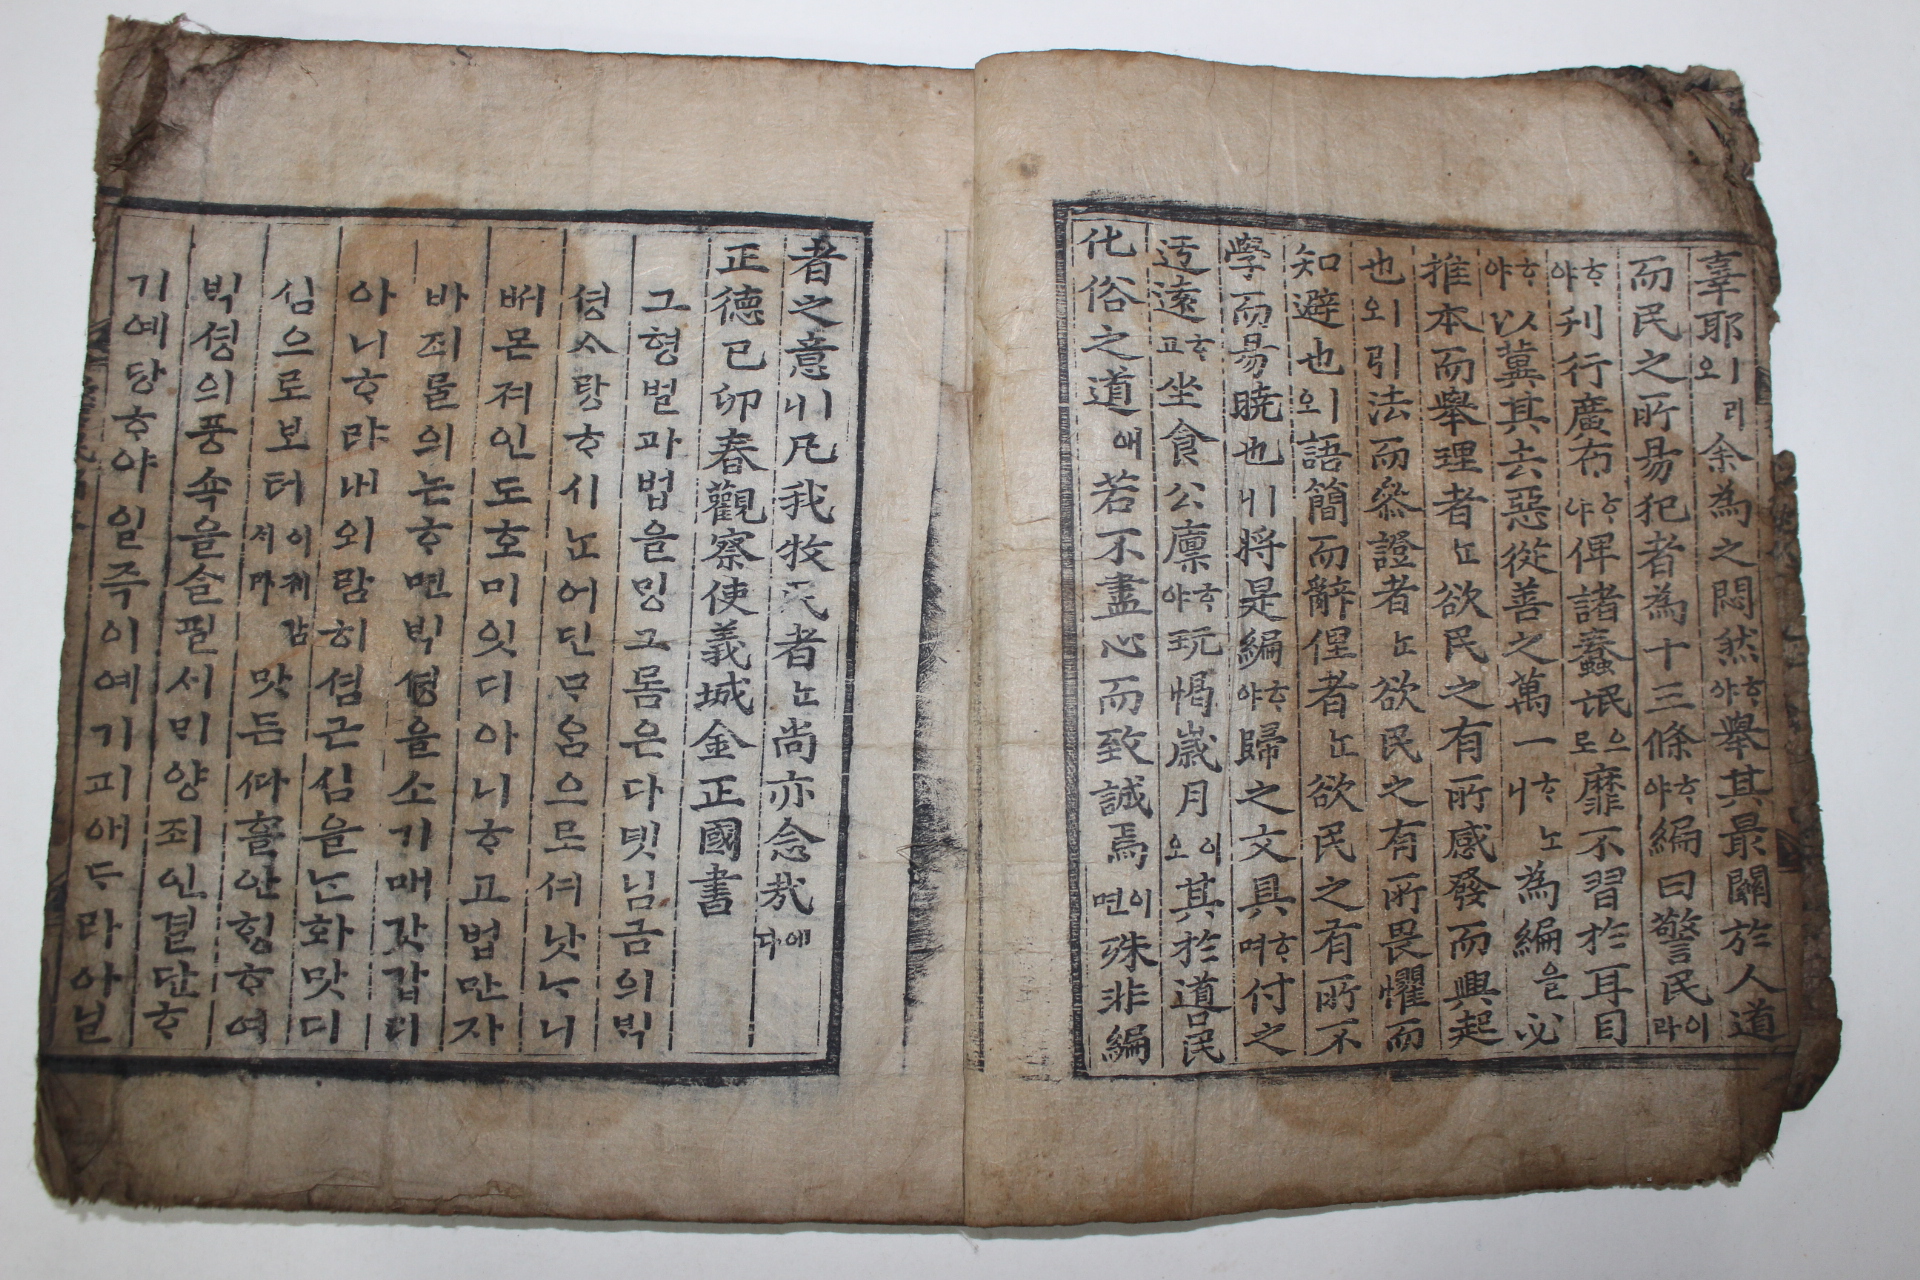 辜耶ㅣ리오余為之悶然ᄒᆞ야舉其最關於人道
而民之所易犯者為十三條ᄒᆞ야編曰警民이라
ᄒᆞ야刋行廣布ᄒᆞ야俾諸蠢氓으로靡不習於耳目
ᄒᆞ야以冀其去惡從善之萬一ᄒᆞ노니為編을必
推本而舉理者ᄂᆞᆫ欲民之有所感發而興起
也ㅣ오引法而叅證者ᄂᆞᆫ欲民之有所畏懼而
知避也ㅣ오語簡而辭俚者ᄂᆞᆫ欲民之有所不
學而易曉也ㅣ니將是編ᄒᆞ야歸之文具ᄒᆞ며付之
迃遠ᄒᆞ고坐食公廩ᄒᆞ야玩愒歲月이오其於道民
化俗之道애若不盡心而致誠焉이면殊非編
者之意ㅣ니凡我牧民者ᄂᆞᆫ尚亦念哉에다
正德己卯春觀察使義城金正國書
그형벌과법을밍ᄀᆞ롬은다뎟님금의ᄇᆡᆨ
셩ᄉᆞ랑ᄒᆞ시ᄂᆞᆫ어딘ᄆᆞ음으로셔낫ᄂᆞ니
버몬져인도호미잇디아니ᄒᆞ고법만자
바죄믈의논ᄒᆞ면ᄇᆡᆨ셩을소기매갓갑디
아니ᄒᆞ랴내외람히셤근심을ᄂᆞᆫ화맛디
심으로보터이제감셔마맛든ᄯᅡ흘안힝ᄒᆞ여
ᄇᆡᆨ셩의풍쇽을슬필ᄉᆡ미양죄인결단ᄒᆞ
기예당ᄒᆞ야일즉이예기피애ᄃᆞ라아닐